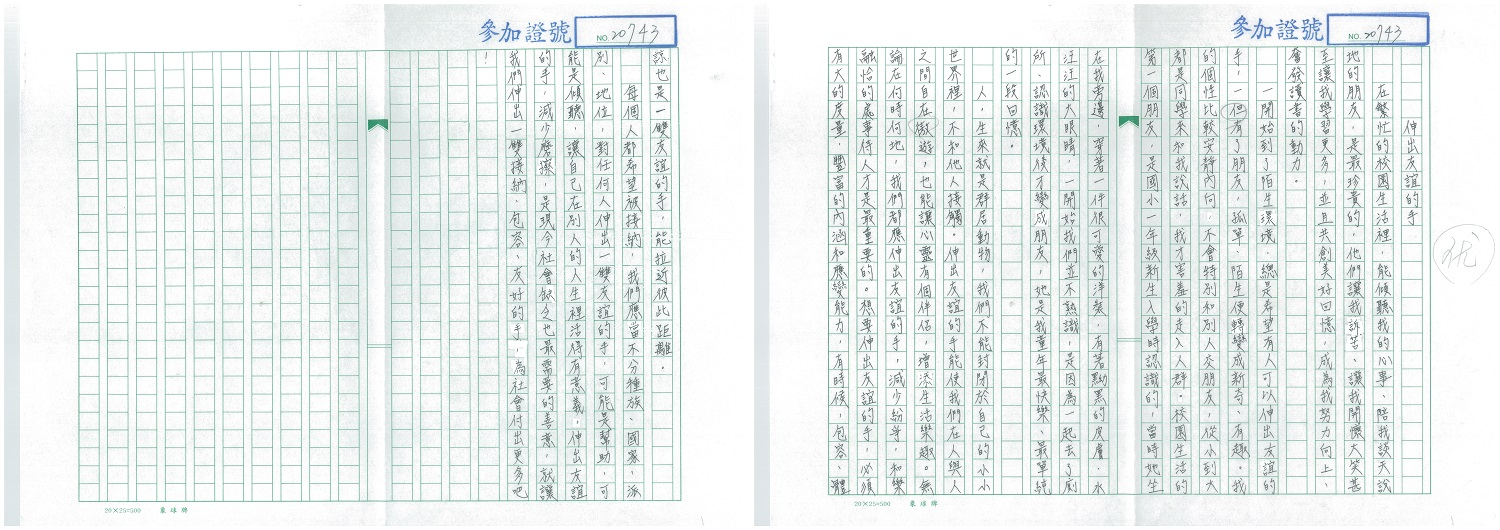 參加證號
NO. 20743
伸出友誼的手
在繁忙的校園生活裡,能傾聽我的心事、陪我談天說
地的朋友,是最珍貴的,他們讓我訴苦、讓我開懷大笑甚
至讓我學習更多,並且共創美好回憶,成為我努力向上、
奮發讀書的動力。
一開始到了陌生環境,總是希望有人可以伸出友誼的
手,一但有了朋友,孤單、陌生便轉變成新奇、有趣。我
的個性比較安靜內向,不會特別和別人交朋友,從小到大
都是同學來和我說話,我才害羞的走入人群。校園生活的
第一個朋友,是國小一年級新生入學時認識的,當時她坐
在我旁邊,穿著一件很可愛的洋裝,有著黝黑的皮膚、水
汪汪的大眼睛,一開始我們並不熟識,是因為一起去了廁
所、認識環境後才變成朋友,她是我童年最快樂、最單純
的一段回憶。
人,生來就是群居動物,我們不能封閉於自己的小小
世界裡,不和他人接觸。伸出友誼的手能使我們在人與人
之間自在傲遊,也能讓心靈有個伴侶,增添生活樂趣。無
論在何時何地,我們都應伸出友誼的手,減少紛爭,和樂
融恰的處事待人才是最重要的。想要伸出友誼的手,必須
有大的度量,豐富的內涵和應變能力,有時候,包容、體
參加證號
NO. 20743
諒也是一雙友誼的手,能拉近彼此距離。
每個人都希望被接納,我們應當不分種族、國家、派
別、地位,對任何人伸出一雙友誼的手,可能是幫助,可
能是傾聽,讓自己在別人的人生裡活得有意義,伸出友誼
的手,減少磨擦,是現今社會缺乏也最需要的善意,就讓
我們伸出一雙接納、包容、友好的手,為社會付出更多吧
!
优
20×25=500 象球牌
20×25=500 象球牌